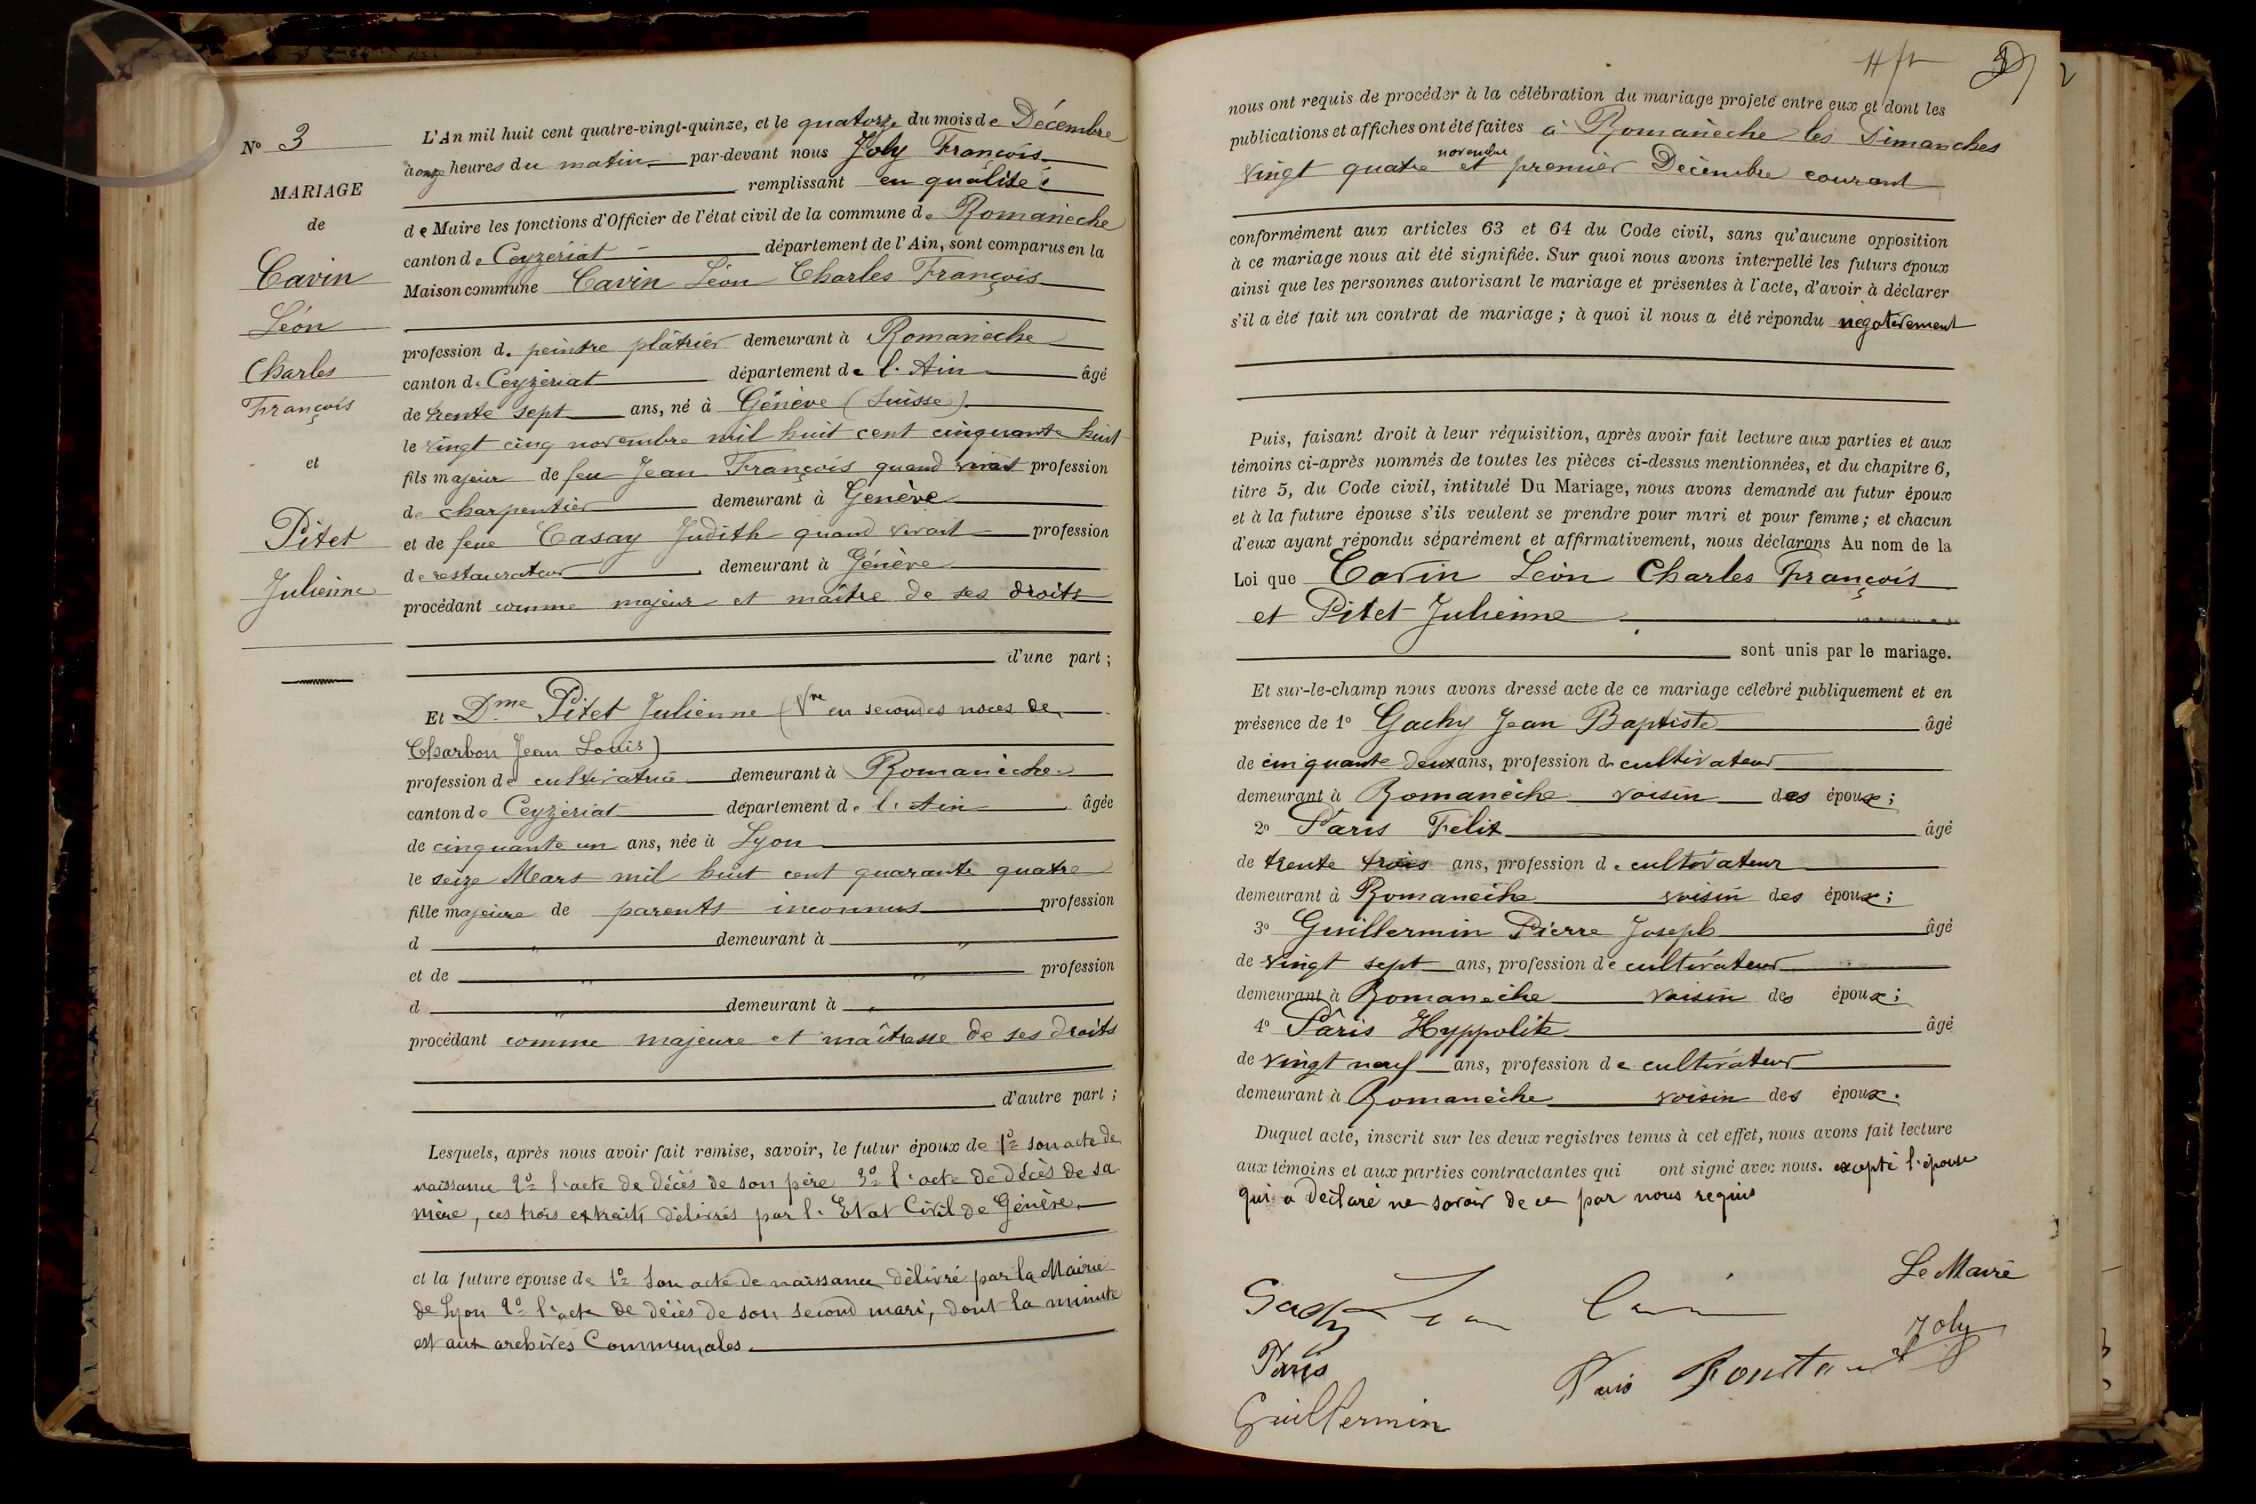 Nº 3
MARIAGE
de
Cavin
Léon
Charles
François
et
Pitet
Julienne
L'An mil huit cent quatre-vingt-quinze, et le quatorze du mois de Décembre
à onze heures du matin par-devant nous Joly François
remplissant en qualité
de Maire les fonctions d'Officier de l'état civil de la commune de Romanèche
canton de Ceyzériat département de l'Ain, sont comparus en la
Maison commune Cavin Léon Charles François
profession de peintre plâtrier demeurant à Romanèche
canton de Ceyzériat département de l'Ain âgé
de trente sept ans, né à Génève (Suisse)
le vingt cinq novembre mil huit cent cinquante huit
fils majeur de feu Jean François quand vivait profession
de charpentier demeurant à Genève
et de feue Casay Judith quand vivait profession
de restaurateur demeurant à Génève
procédant comme majeur et maître de ses droits
d'une part ;
Et Dme Pitet Julienne (Vve en secondes noces de
Charbon Jean Louis)
profession de cultivatrice demeurant à Romanèche
canton de Ceyzériat département de l'Ain âgée
de cinquante un ans, née à Lyon
le seize Mars mil huit cent quarante quatre
fille majeure de parents inconnus profession
d " demeurant à "
et de " " profession
d " demeurant à "
procédant comme majeure et maîtresse de ses droits
d'autre part ;
Lesquels, après nous avoir fait remise, savoir, le futur époux de 1º son acte de
naissance 2º l'acte de décès de son père 3º l'acte de décès de sa
mère, ces trois extraits délivrés par l'Etat Civil de Génève.
et la future épouse de 1º Son acte de naissance délivré par la Mairie
de Lyon 2º l'acte de décès de son second mari, dont la minute
est aux archives Communales.
nous ont requis de procéder à la célébration du mariage projeté entre eux et dont les
publications et affiches ont été faites à Romanèche les Dimanches
novembre
vingt quatre et premier Décembre courant
conformément aux articles 63 et 64 du Code civil, sans qu'aucune opposition
à ce mariage nous ait été signifiée. Sur quoi nous avons interpellé les futurs époux
ainsi que les personnes autorisant le mariage et présentes à l'acte, d'avoir à déclarer
s'il a été fait un contrat de mariage ; à quoi il nous a été répondu négativement
Puis, faisant droit à leur réquisition, après avoir fait lecture aux parties et aux
témoins ci-après nommés de toutes les pièces ci-dessus mentionnées, et du chapitre 6,
titre 5, du Code civil, intitulé Du Mariage, nous avons demandé au futur époux
et à la future épouse s'ils veulent se prendre pour mari et pour femme ; et chacun
d'eux ayant répondu séparément et affirmativement, nous déclarons Au nom de la
Loi que Cavin Léon Charles François
et Pitet Julienne
sont unis par le mariage.
Et sur-le-champ nous avons dressé acte de ce mariage célébré publiquement et en
présence de 1º Gachy Jean Baptiste âgé
de cinquante deux ans, profession de cultivateur
demeurant à Romanèche voisin des époux ;
2º Paris Félix âgé
de trente trois ans, profession de cultivateur
demeurant à Romanèche voisin des époux ;
3º Guillermin Pierre Joseph âgé
de vingt sept ans, profession de cultivateur
demeurant à Romanèche voisin des époux ;
4º Pâris Hyppolite âgé
de vingt neuf ans, profession de cultivateur
demeurant à Romanèche voisin des époux.
Duquel acte, inscrit sur les deux registres tenus à cet effet, nous avons fait lecture
aux témoins et aux parties contractantes qui ont signé avec nous. excepté l'épouse
qui a déclaré ne savoir de ce par nous requis
Le Maire
Gachy Jean
Joly
Paris
Paris
Guillermin